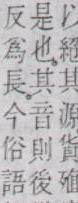 以絕其源貨雖
是也。其音則後
反爲長。今俗語